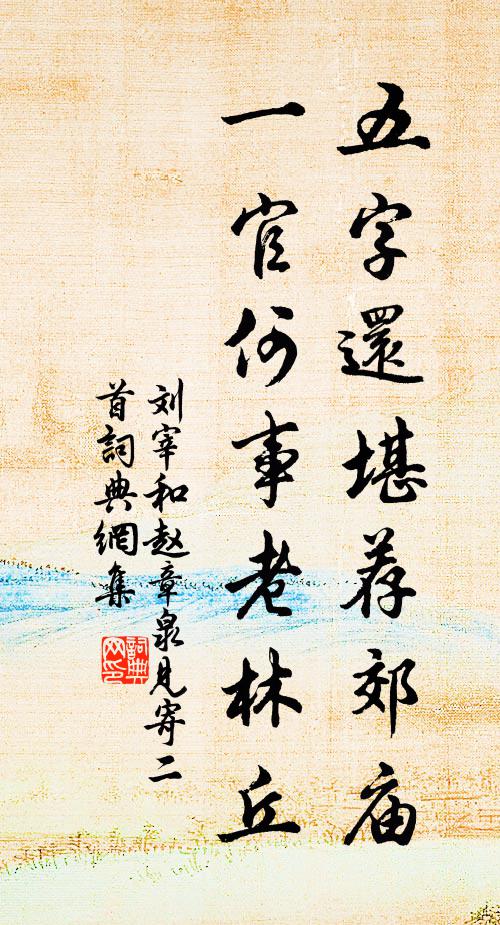 五字還堪荐郊庙
一官何事老林丘
刘宰和赵章泉见寄二
首詞典網集
詞典网印